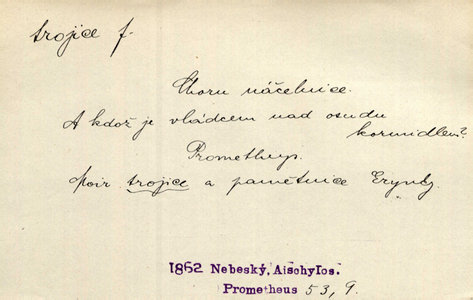 trojice f.
Choru náčelnice.
A kdož je vládcem nad osudu
kormidlem?
Promethejs.
Moir trojice a pamětnice Eryny.
1862 Nebeský, Aischylos.
Prometheus 53, 9.